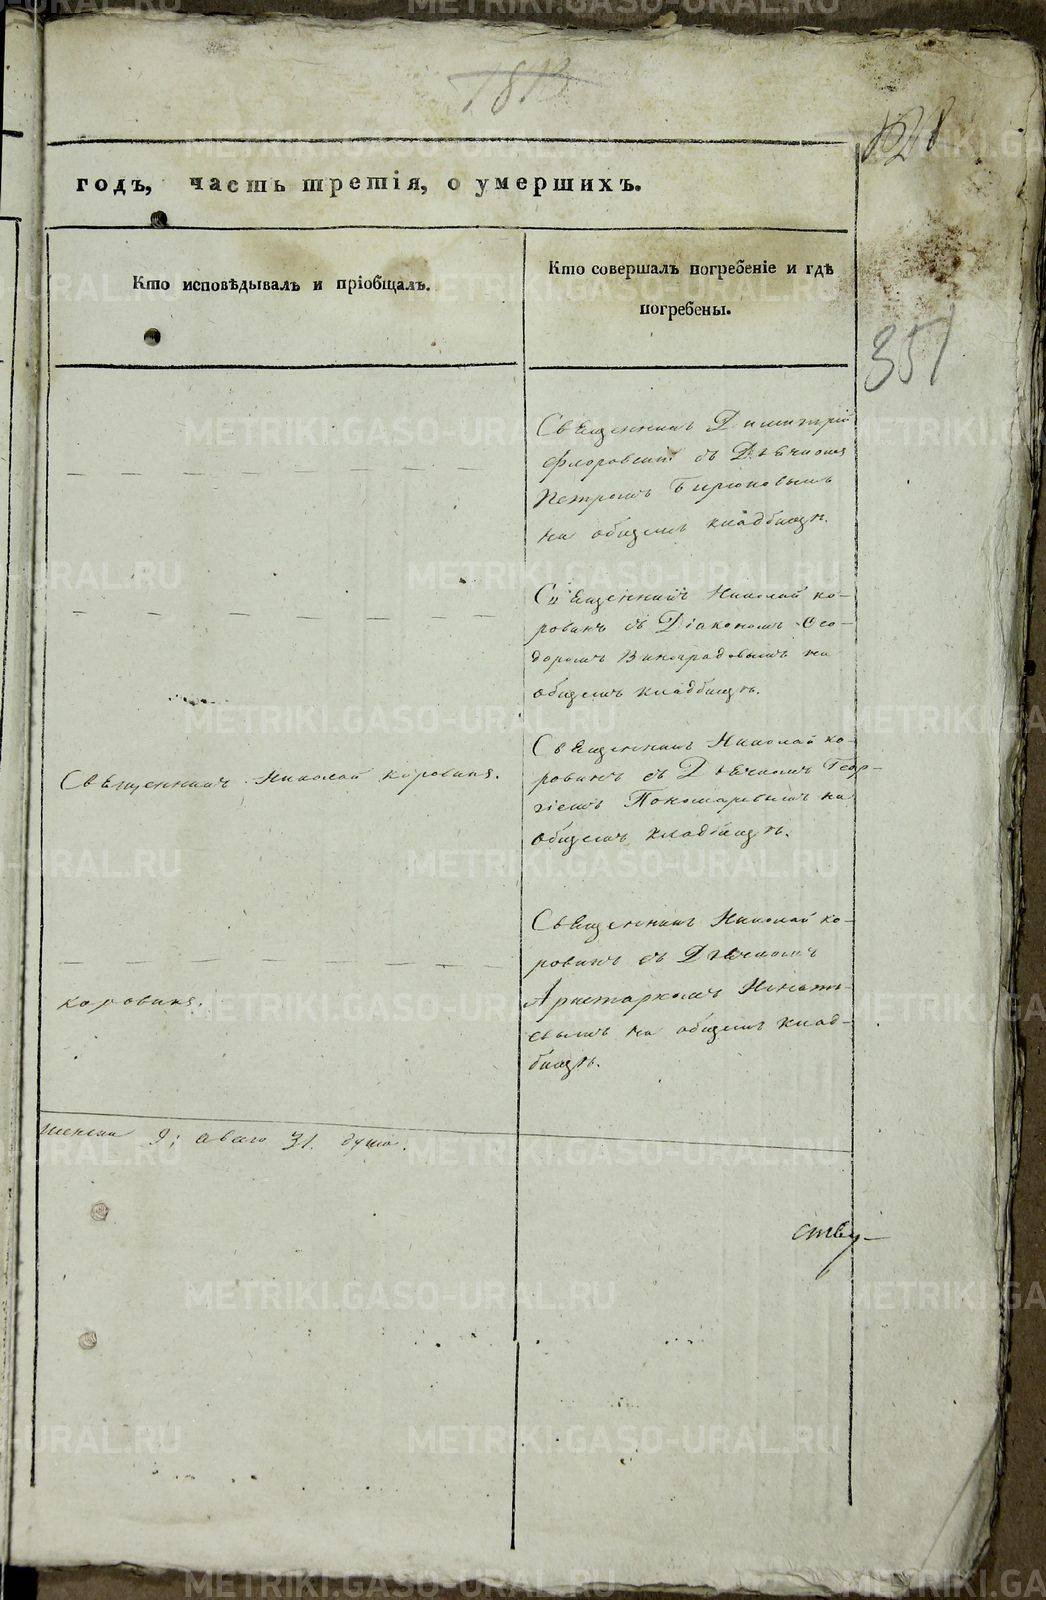 1813
528
годъ, часть третія, о умершихъ.
Кто исповѣдывалъ и пріобщалъ.
Кто совершалъ погребеніе и гдѣ
погребены.
351
Священникъ Димитрій
Флоровскій съ Дьячкомъ
Петромъ Бирюковымъ
на общемъ кладбищѣ.
Священникъ Николай Ко-
ровинъ съ Діакономъ Ѳео-
доромъ Виноградовымъ на
общемъ кладбищѣ.
Священникъ Николай Коровинъ.
Священникъ Николай Ко-
ровинъ съ Дьячкомъ Геор-
гіемъ Пономаревымъ на
общемъ кладбищѣ.
Коровинъ.
Священникъ Николай Ко-
ровинъ съ Дьячкомъ
Аристархомъ Игнать-
евымъ на общемъ клад-
бищѣ.
женска 9; а всего 31. душа.
ству
METRIKI.GASO-URAL.RU